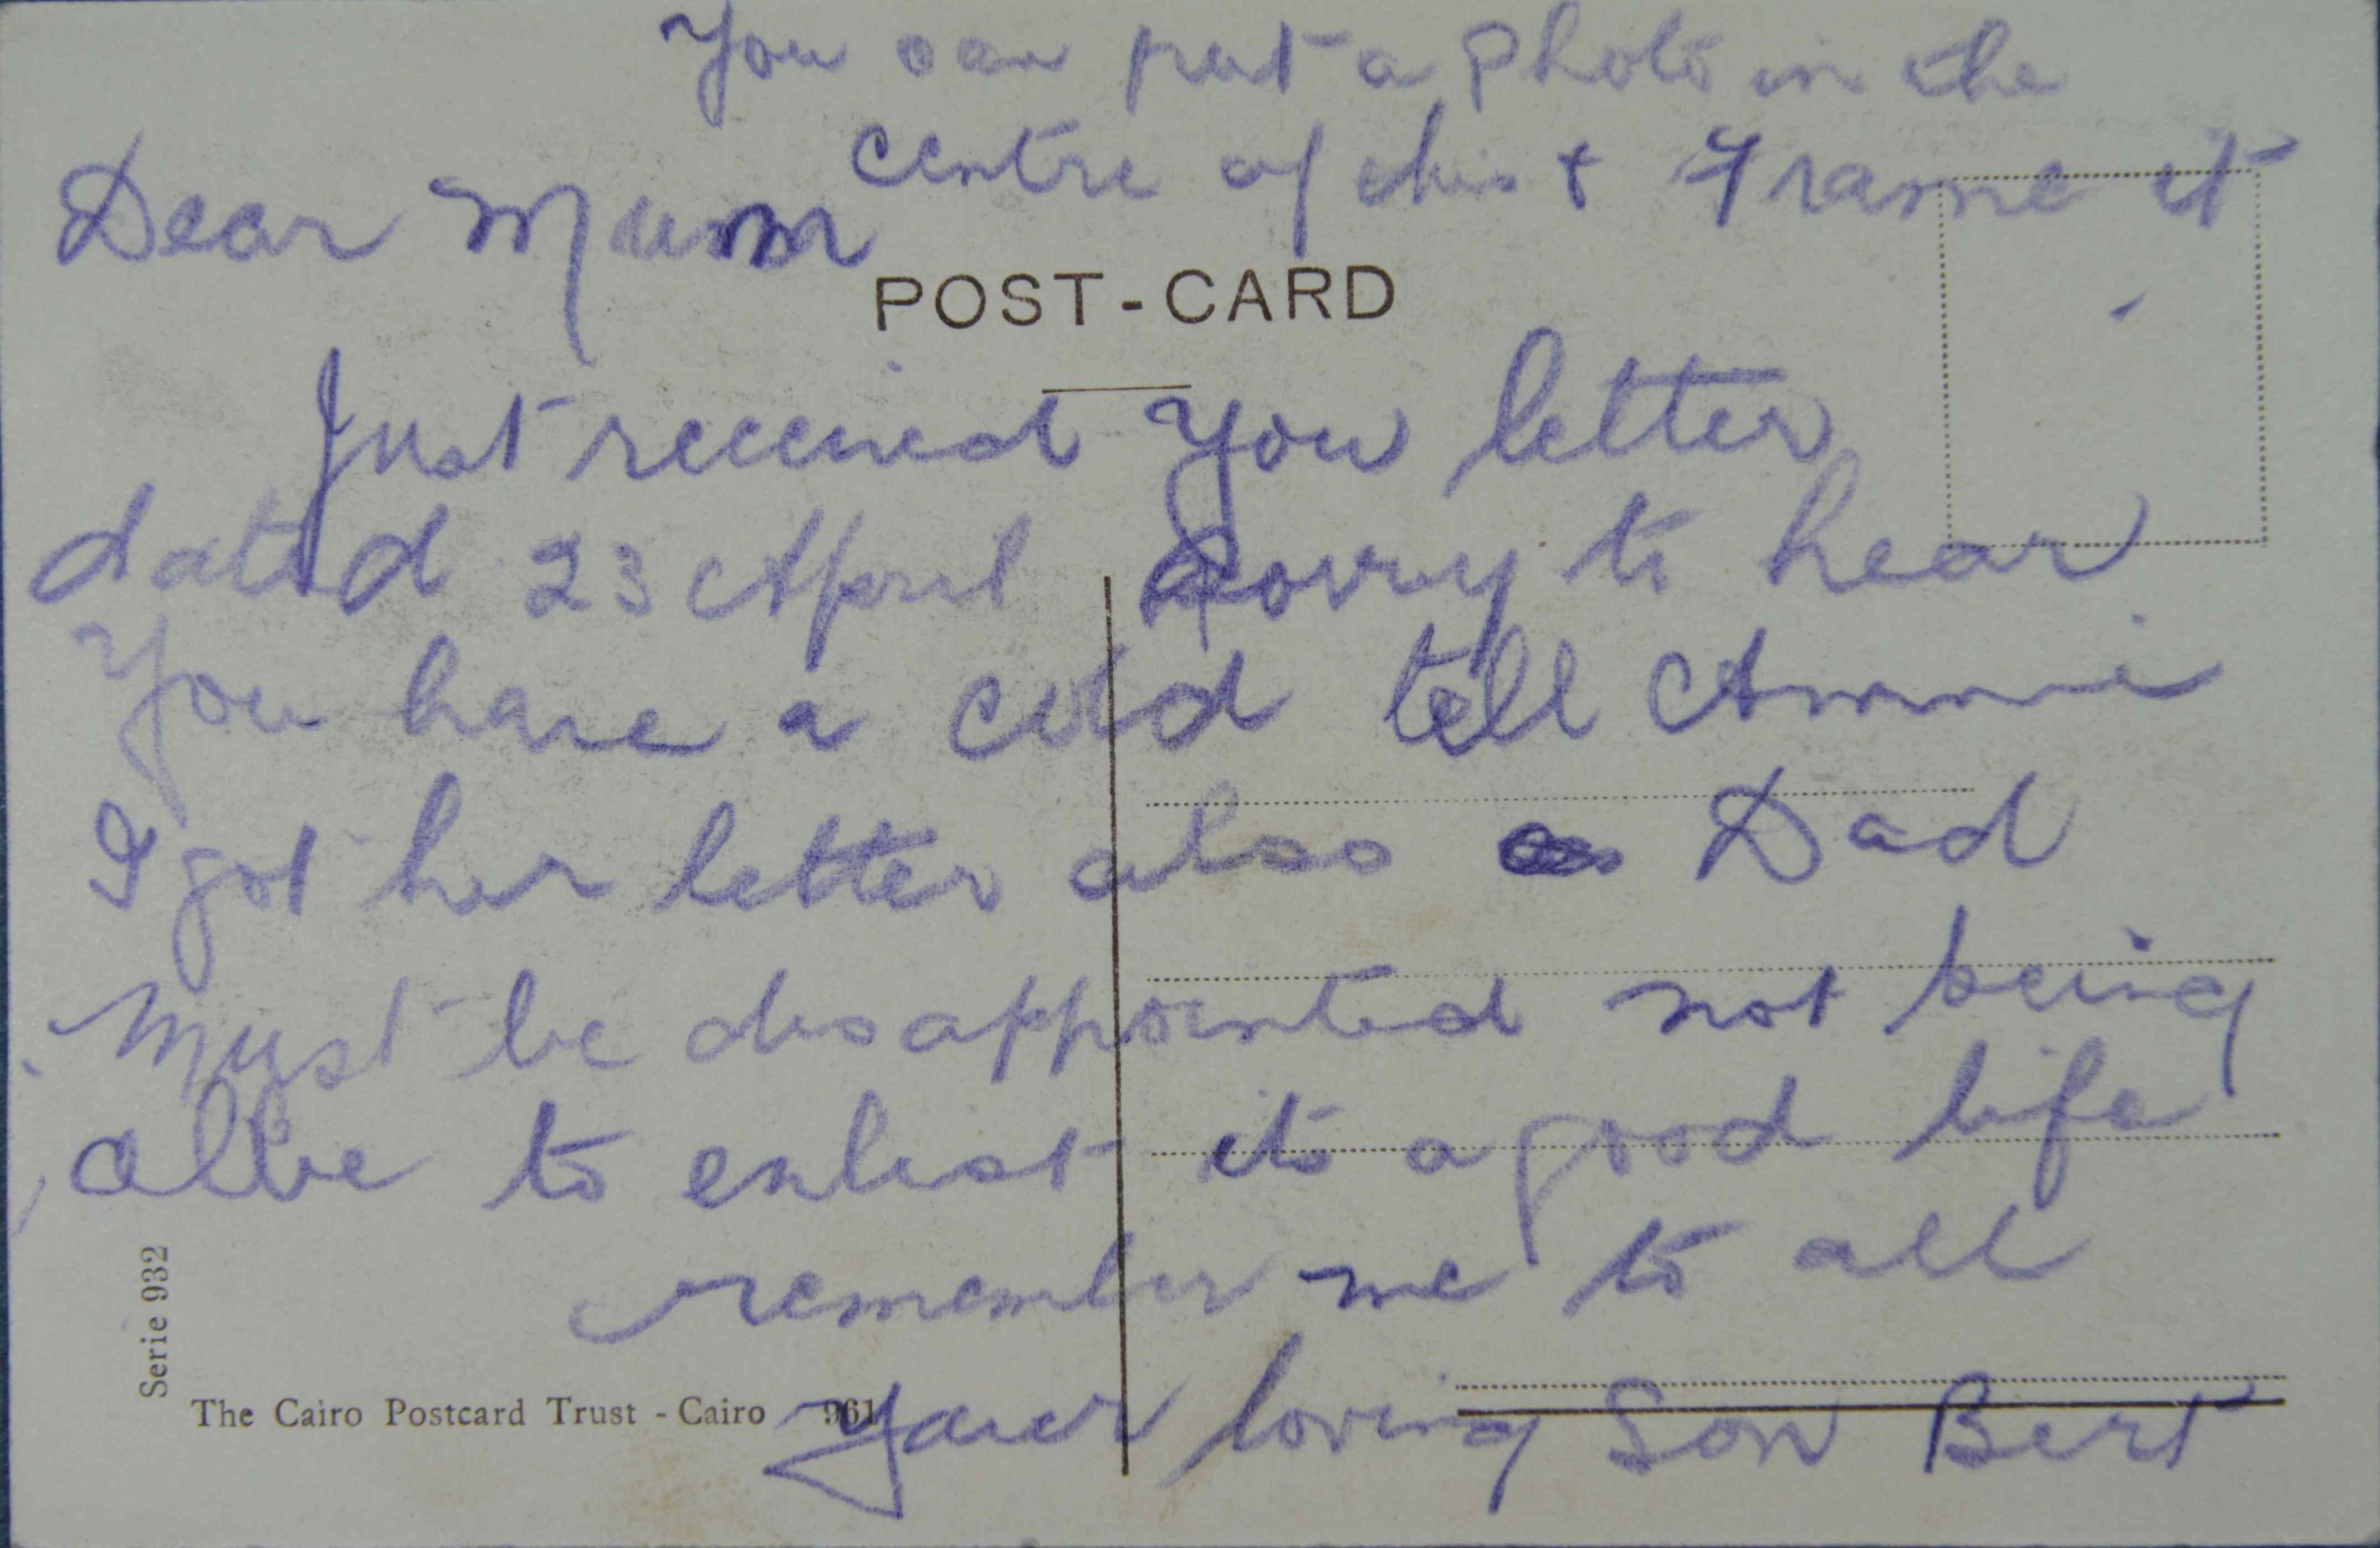 You can put a Photo in the
centre of this & Frame it
Dear Mum
POST-CARD
Just received you letter
dated 23 April Sorry to hear
You have a cold tell Annie
I got her letter also Dad
Must be disappointed not being
able to enlist its a good life
remember me to all
Your loving Son Bert
Serie 932
The Cairo Postcard Trust - Cairo 961